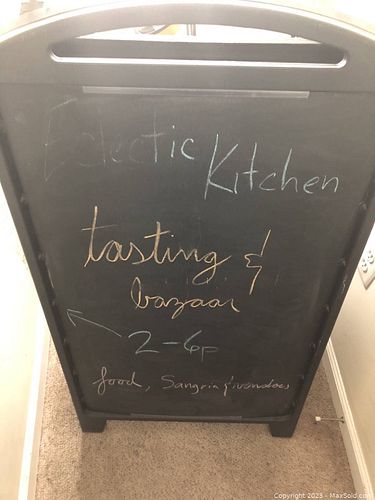 Eclectic
Kitchen
tasting &
bazaar
2-6p
food, Sangria &
Copyright 2023 - MaxSold.com